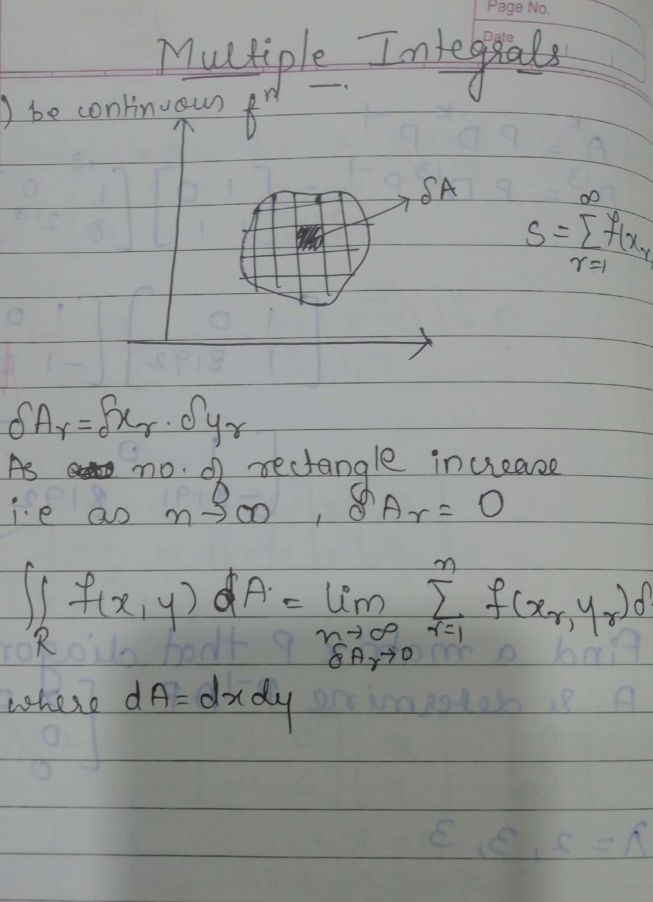 Page No.
Date
Multiple Integrals
) be continuous fⁿ
δA
S = ∞ Σ r=1 f(x_r
δA_r = δx_r . δy_r
As no. of rectangle increase
i.e as n→∞ , δA_r = 0
∬_R f(x,y) dA = lim n→∞ δA_r→0 n Σ r=1 f(x_r, y_r)δ
where dA = dxdy